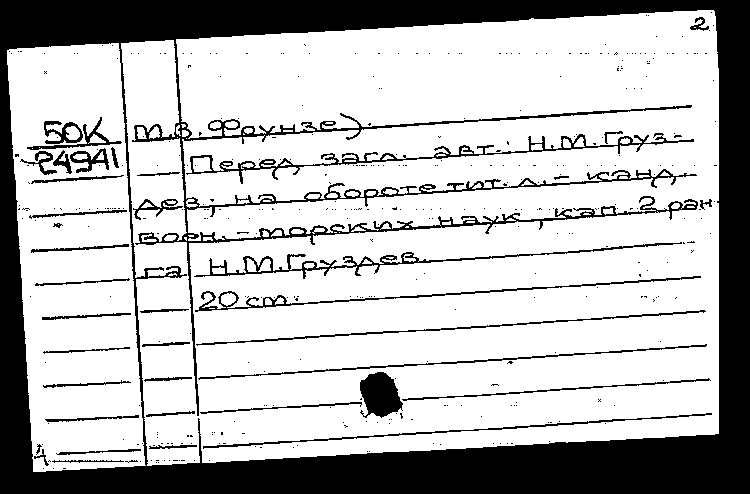 2
50К
24941
М.В.Фрунзе).
Перед загл. авт.: Н.М.Груз-
дев; на обороте тит. л. - канд.
воен.-морских наук, кап. 2 ран-
га Н.М.Груздев.
20 см.
4